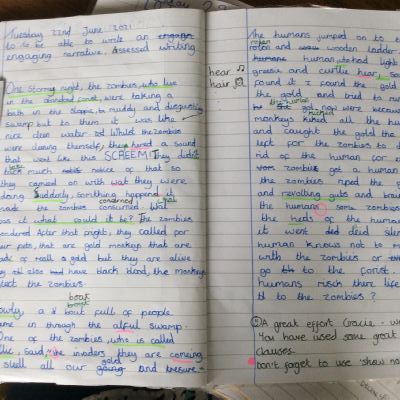 Tuesday 22nd June 2021
to be able to write an
engaging narrative. Assessed writing
One stormy night, the zombies, who live
in the abanded forest, were taking a
bath in the sloppie, muddy and disgusting
swamp but to them it was like
nice clean water. Whilst the zombies
were doing themself, they hired a sound
that went like this SCREEM!! They didn't
take much notice of that so
they carried on with wat they were
doing. Suddenly, somthing happend it
made the zombies consurned. Wat
was it what could it be? The zombies
wondered. After that fright, they called for
our pets, that are gold monkeys that are
made of reall gold but they are alive
they still also have black blood, the monkeys
protect the zombies.
boat
brought
Slowly, a boat full of people
came in through the alful swamp.
One of the zombies, who is called
said, "the invaders they are coming
to steall all our gold and tresure."
hear
hair
The humans jumped on to
wooden ladder.
human, who had light
greesu and curllie hear, so
found it I found the gold
the gold and tried to run
gol, not were because
monkeys kiked all the hu
and caught the gold the
left for the zombies to d
rid of the human for e
zombies get a human
the zombies riped the g
and revolting guts and brain
the humans, some zombies
the heds of the humans
it went ded died silen
human knows not to m
with the zombies or ev
go to the forist.
humens risch there life
to the zombies?
A great effort Gracie - w
You have used some great
clauses.
Don't forget to use 'show no